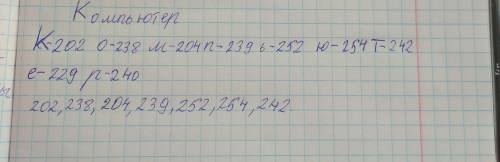 Компьютер
К-202 о-238 м-204 п-239 ь-252 ю-254 т-242
е-229 р-240
202, 238, 204, 239, 252, 254, 242